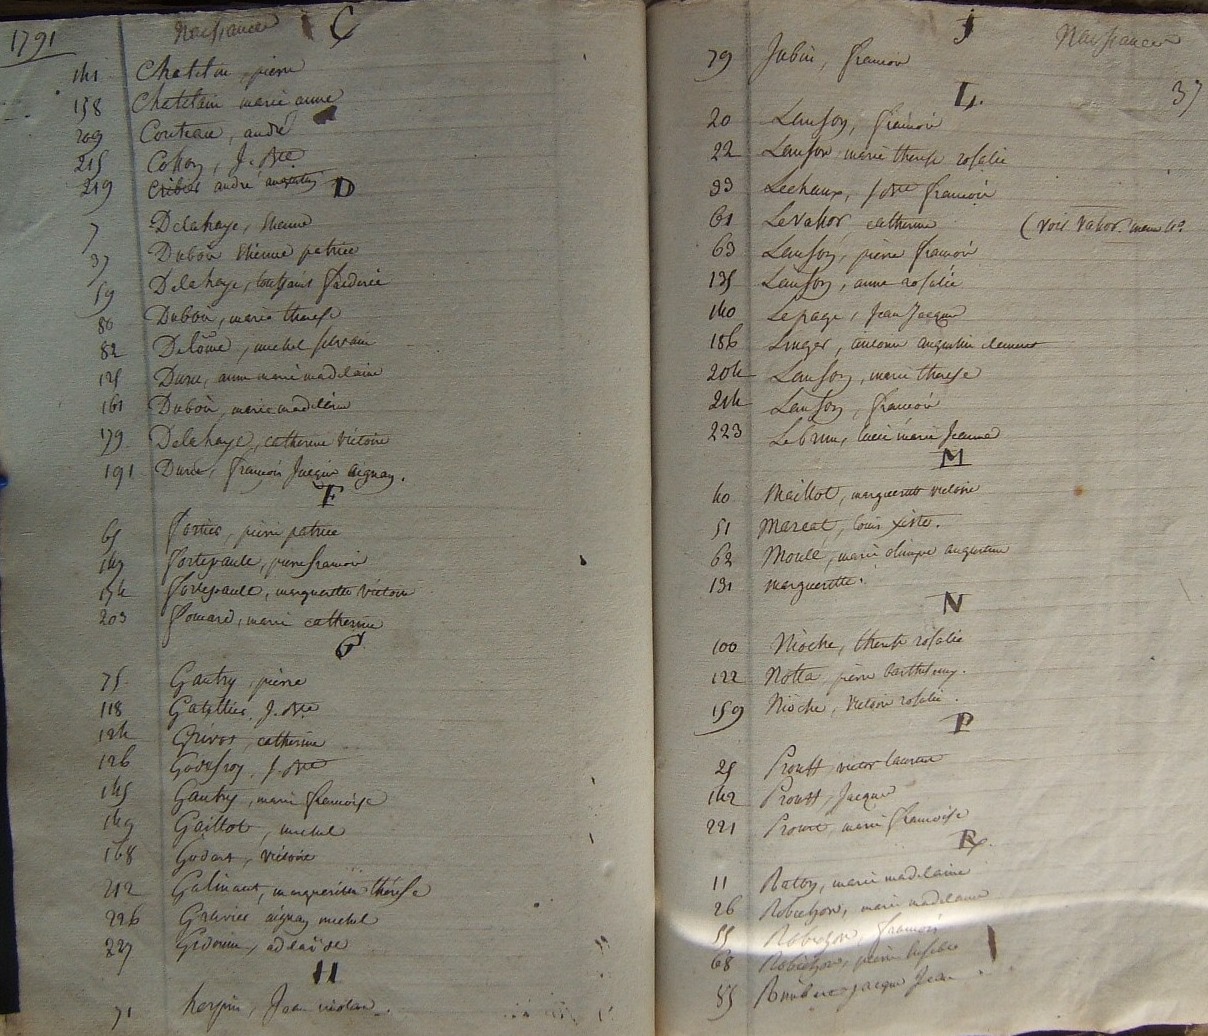 1791
Naissances C
141 Chatelain, pierre
158 Chatelain marie anne
209 Couteau, andré
215 J. Bte
219 andré augustin
D
7 Delahaye, Etienne
37 Dubois Etienne patrice
59 Delahaye, toussaint frederic
80 Dubois, marie therese
82 Delôme, michel silvain
125 anne marie madelaine
161 Dubois, marie madelaine
179 Delahaye, catherine victoire
191 françois Jacques aignan.
F
65 Fortier, pierre patrice
147 Fortepaule, pierre francois
154 Fortepaule, marguerite victoire
203 marie catherine
G
75 Gautry, pierre
118 J. Bte
124 catherine
126 Godefroy, J. Bte
145 Gautry, marie francoise
149 Gaillot, michel
168 Godart, victoire
212 marguerite thérèse
226 aignan michel
227 adelaïde
H
71 Jean nicolas.
J Naissances
79 Jubin, francois
L. 37
20 Lanson, francois
22 Lanson marie therese rosalie
33 Lechaux, j bte francois
61 Levassor, catherine (voir Vassor. meme no
63 Lanson, pierre francois
135 Lanson, anne rosalie
140 Lepage, Jean Jacques
186 Linger, antoine augustin clement
204 Lanson, marie therese
214 Lanson, francois
223 Lebrun, marie Jeanne
M
40 Maillot, marguerite victoire
51 Marcat, louis xiste.
62 Moulé, marie olimpe augustine
131 marguerite.
N
100 Nioche, therese rosalie
122 Notta, pierre barthelemy.
159 Nioche, victoire rosalie.
P
25 Proust, victor laurent
142 Proust, Jacques
221 Proust, marie francoise
R.
11 marie madelaine
26 Robichon, marie madelaine
55 Robichon, francois
68 Robichon, pierre
85 jacques Jean